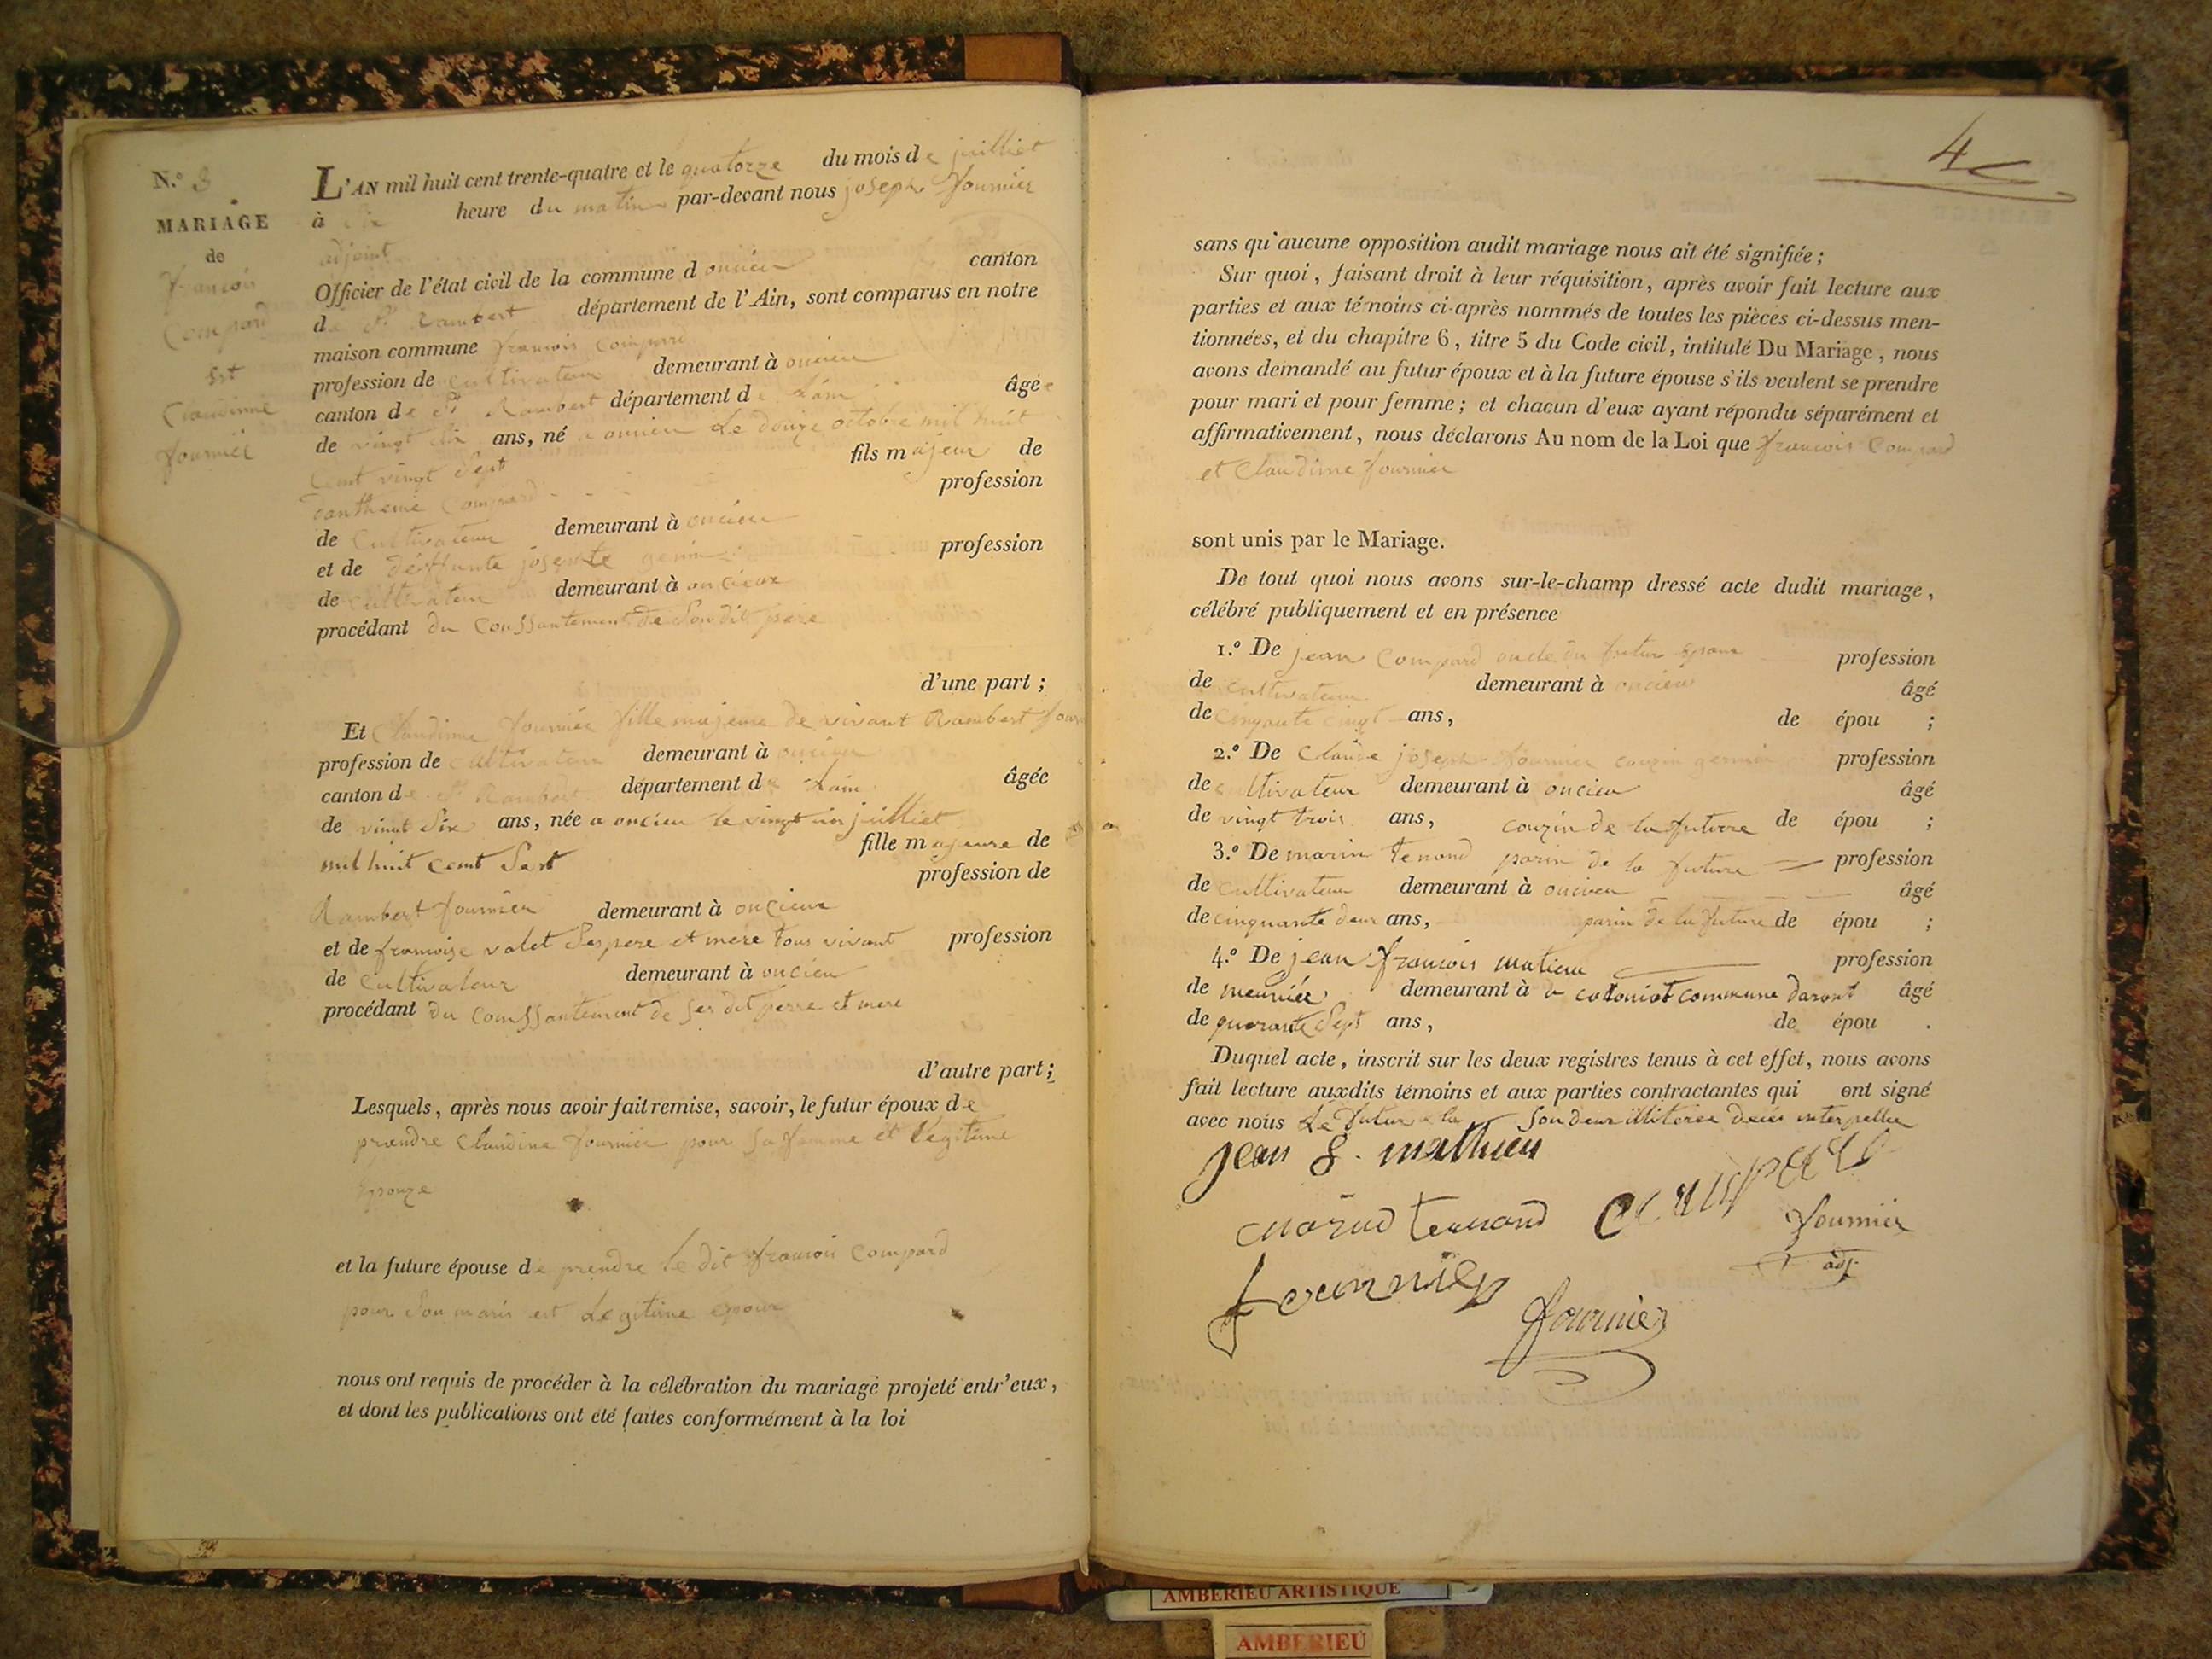 N.º 3
MARIAGE
de
françois
Compard
est
Claudinne
fournier
L'AN mil huit cent trente-quatre et le quatorze du mois de juilliet
à heure du matin par-devant nous joseph fournier
adjoint
Officier de l'état civil de la commune d oncieu canton
de St Rambert département de l'Ain, sont comparus en notre
maison commune francois Compard
profession de cultivateur demeurant à oncieu
canton de St Rambert département de Lain âgé
de vingt ans, né a oncieu Le douze octobre mil huit
cent vingt Sept fils majeur de
Compard profession
de Cultivateur demeurant à oncieu
et de deffunte josephte genin profession
de cultivateur demeurant à oncieux
procédant du Conssantement de Son dit pere
d'une part ;
Et Claudinne fournier fille majeure de vivant Rambert
profession de Cultivateur demeurant à oncieu
canton de St Rambert département de Lain âgée
de vingt Six ans, née a oncieu le vingt un juilliet
mil huit Cent Sept fille majeure de
profession de
Rambert fournier demeurant à oncieux
et de francoise valet Ses pere et mere tous vivant profession
de Cultivateur demeurant à oncieu
procédant du Conssantement de ses dit perre et mere
d'autre part ;
Lesquels, après nous avoir fait remise, savoir, le futur époux de
prendre Claudine fournier pour Sa famme et Legitime
Epouze
et la future épouse de prendre le dit francois Compard
pour Son maris est Legitime epoux
nous ont requis de procéder à la célébration du mariage projeté entr'eux,
et dont les publications ont été faites conformément à la loi
4
sans qu'aucune opposition audit mariage nous ait été signifiée ;
Sur quoi, faisant droit à leur réquisition, après avoir fait lecture aux
parties et aux témoins ci-après nommés de toutes les pièces ci-dessus men-
tionnées, et du chapitre 6, titre 5 du Code civil, intitulé Du Mariage, nous
avons demandé au futur époux et à la future épouse s'ils veulent se prendre
pour mari et pour femme ; et chacun d'eux ayant répondu séparément et
affirmativement, nous déclarons Au nom de la Loi que francois Compard
et Claudine fournier
sont unis par le Mariage.
De tout quoi nous avons sur-le-champ dressé acte dudit mariage,
célébré publiquement et en présence
1.º De jean Compard oncle du futur Epoux profession
de cultivateur demeurant à oncieu âgé
de ans, de épou ;
2.º De Claude joseph fournier couzin germain profession
de cultivateur demeurant à oncieu âgé
de vingt trois ans, couzin de la futurre de épou ;
3.º De marin tenand parin de la future profession
de cultivateur demeurant à oncieu âgé
de cinquante deux ans, parin de la future de épou ;
4.º De jean francois matieu profession
de meunier demeurant à commune darant âgé
de quarante Sept ans, de épou .
Duquel acte, inscrit sur les deux registres tenus à cet effet, nous avons
fait lecture auxdits témoins et aux parties contractantes qui ont signé
avec nous Le futur e la Son deux
jean f. mathieu
marin tenand Compard fournier
adj
fournier
fournier
AMBERIEU ARTISTIQUE
AMBERIEU